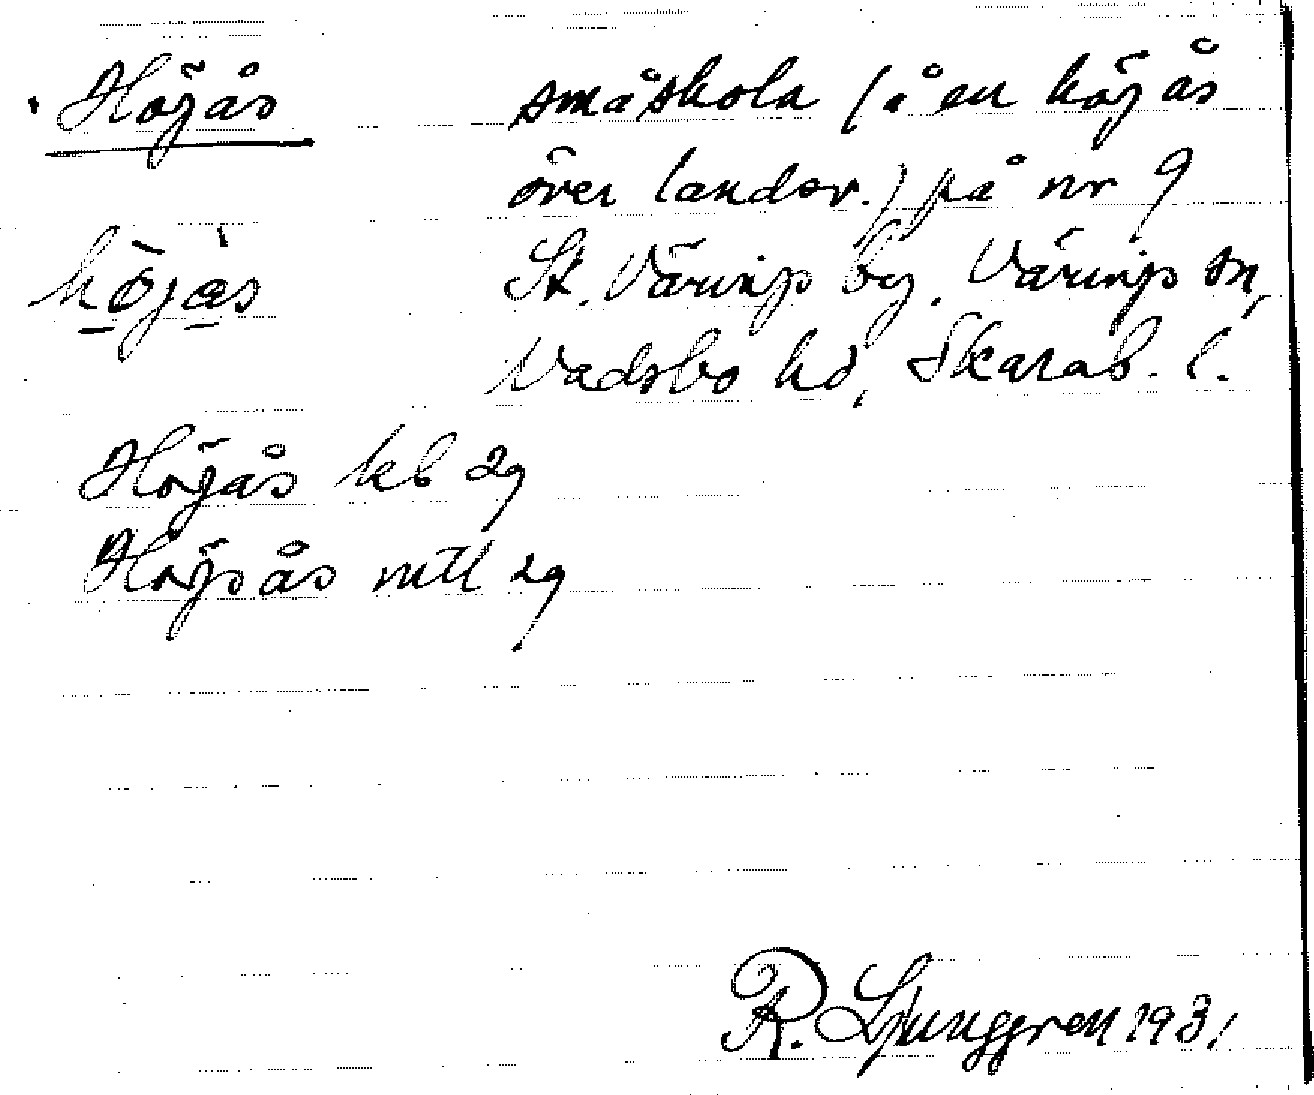 Höjås
höjås
Höjås kb 29
Höjsås mtl 29
småskola (å en höjås
över landsv.) på nr 9
St. Värings by. Värings sn,
Vadsbo hd, Skarab. l.
R. Ljunggren 1931